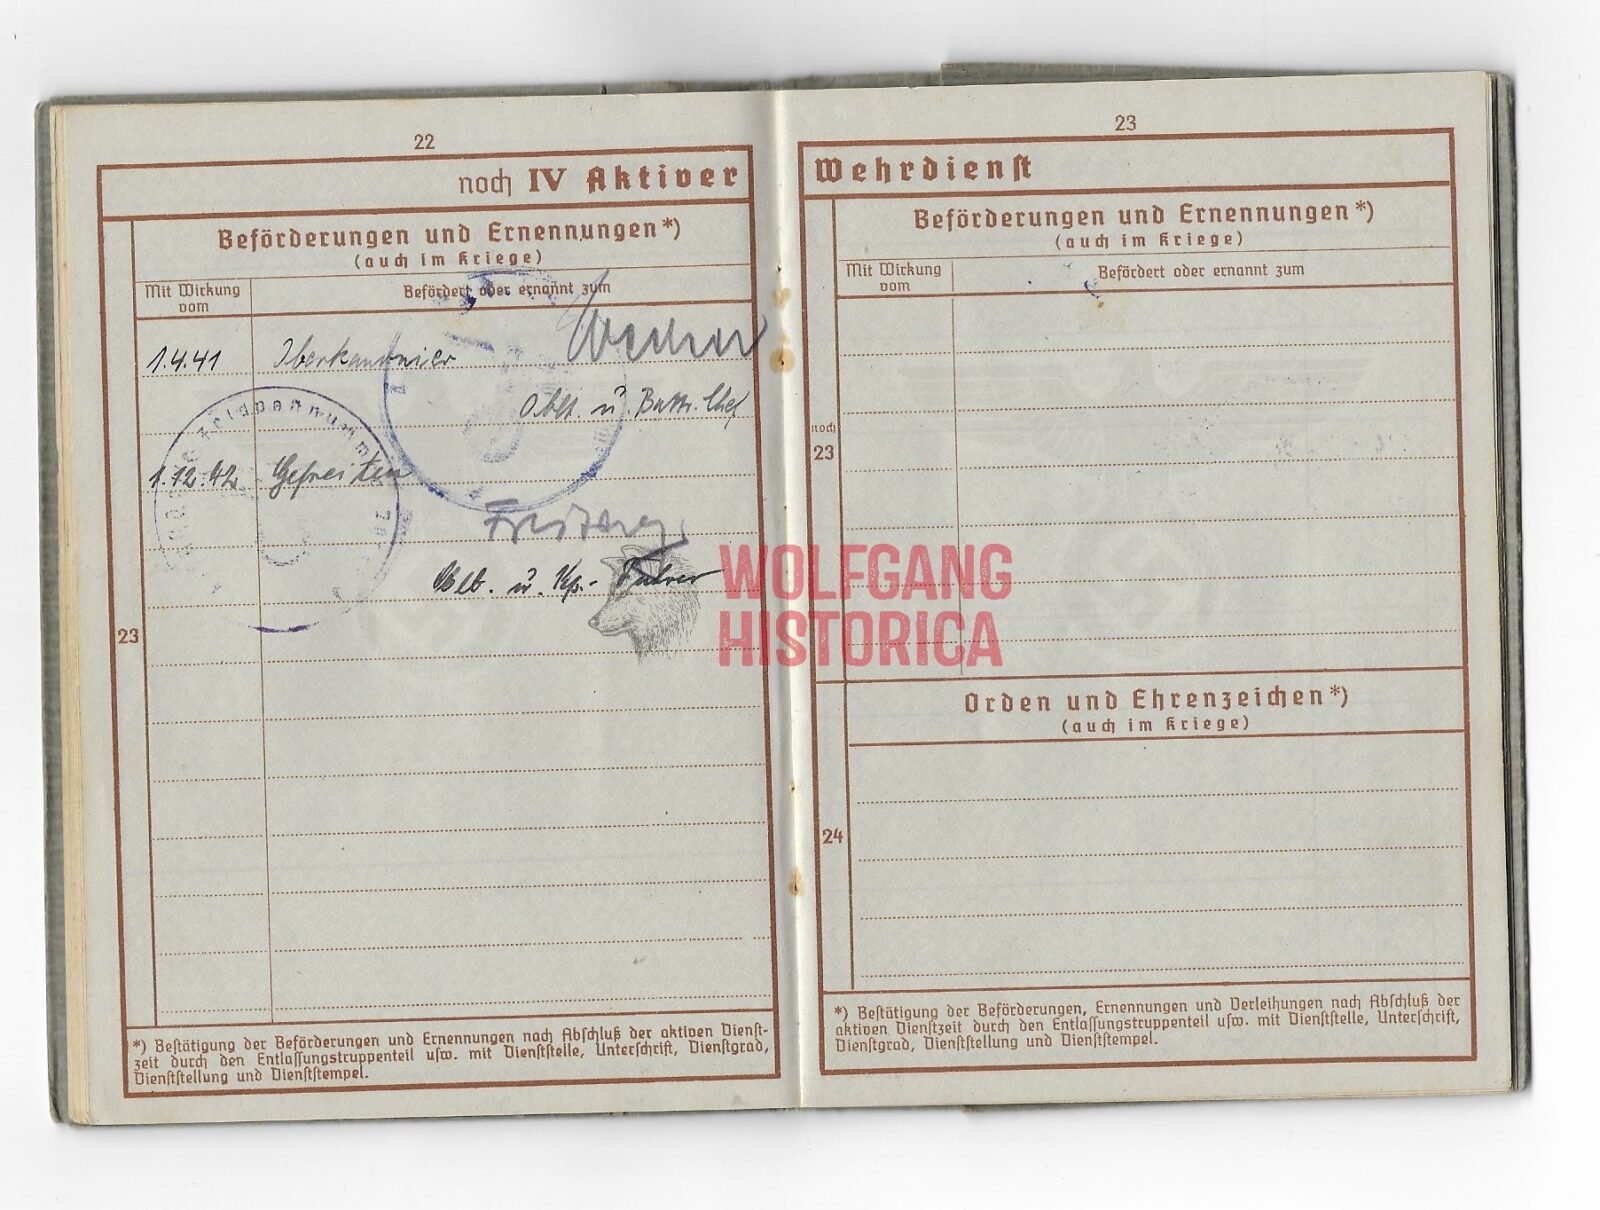 22
noch IV Aktiver
Beförderungen und Ernennungen*)
(auch im Kriege)
Mit Wirkung
vom
Befördert oder ernannt zum
1.4.41 Oberkanonier
Oblt. u. Battr. Chef
1.12.42 Gefreiten
u. Kp.- Führer
23
*) Bestätigung der Beförderungen und Ernennungen nach Abschluß der aktiven Dienst-
zeit durch den Entlassungstruppenteil usw. mit Dienststelle, Unterschrift, Dienstgrad,
Dienststellung und Dienststempel.
WOLFGANG
HISTORICA
23
Wehrdienst
Beförderungen und Ernennungen*)
(auch im Kriege)
Mit Wirkung
vom
Befördert oder ernannt zum
noch
23
Orden und Ehrenzeichen*)
(auch im Kriege)
24
*) Bestätigung der Beförderungen, Ernennungen und Verleihungen nach Abschluß der
aktiven Dienstzeit durch den Entlassungstruppenteil usw. mit Dienststelle, Unterschrift,
Dienstgrad, Dienststellung und Dienststempel.